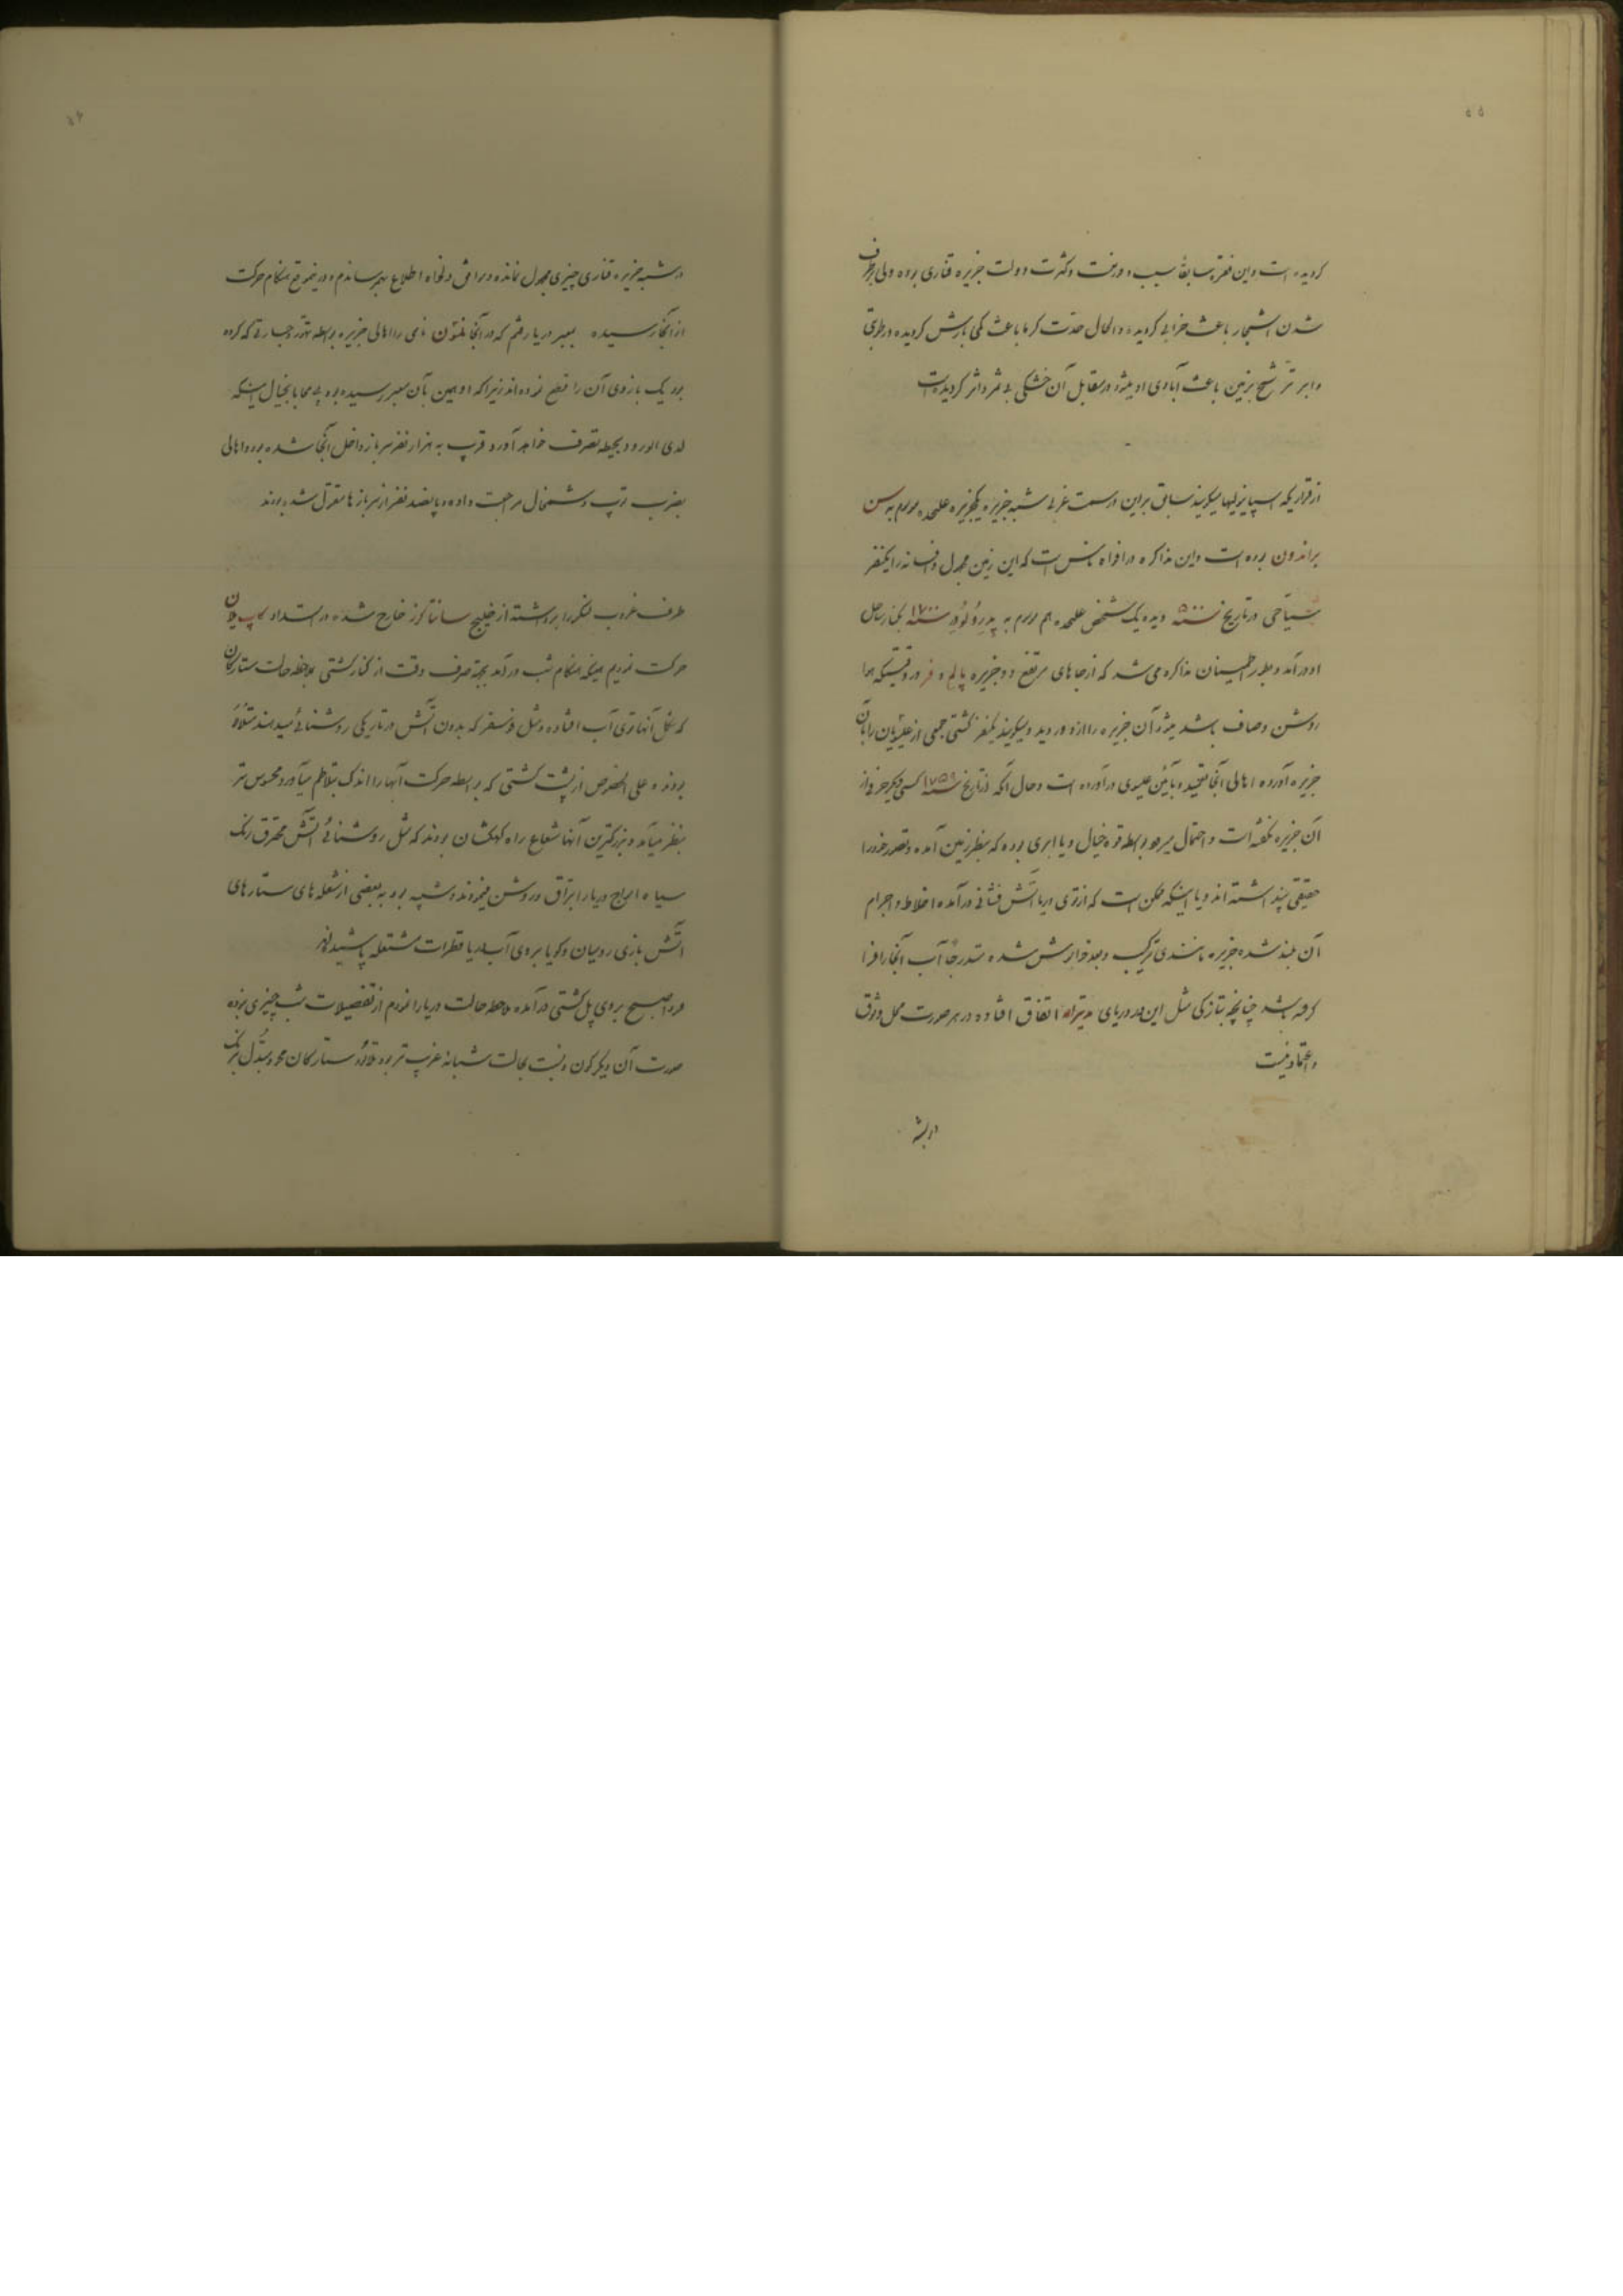 ۵۵
گردیده است و این فقره سابقاً سبب ورخت و کثرت دولت جزیره قناری بوده ولی برطرف
شدن اشجار باعث خرابی گردیده و الحال حدّت گرما باعث کمی بارش گردیده در طریق
و ابر ترشح بزمین باعث آبادی او میشود در مقابل آن خشکی بی ثمر دائر گردیده است
از قراریکه اسپانیولیها میگویند سابق براین در سمت غربی شبه جزیره یکجزیره علیحده موسوم به سن
براندون بوده است و این مذاکره در افواه ناس است که این زمین مجهول و افسانه را یکنفر
سیاحی در تاریخ سنه ۱۵۰۰ دیده یک شخص علیحده هم موسوم به پدرو در سنه ۱۷۰۰ بکنار ساحل
او در آمد و بطور اطمینان مذاکره می شد که از جاهای مرتفع دو جزیره پالم و فر در وقتیکه هوا
روشن و صاف باشد میشود آن جزیره را از دور دید و میگویند یکنفر کشتی جمعی از عیسویان را بآن
جزیره آورده اهالی آنجا بآئین عیسوی درآورده است و حال آنکه از تاریخ سنه ۱۷۵۹ کسی دیگر حرفی از
آن جزیره نگفته است و احتمال میرود بواسطه قوه خیال و یا ابری بوده که بنظر زمین آمده و تصور خود را
حقیقی پنداشته اند و یا اینکه ممکن است که از توی دریا آتش فشانی در آمده اخلاط و اجرام
آن بلند شده جزیره مانندی ترکیب و بعد خاموش شده متدرجاً آب آنجا را فرا
گرفته باشد چنانچه بتازگی مثل این در دریای مدیترانه اتفاق افتاده در هر صورت محل وثوق
و اعتماد نیست
در شبه
۵۶
در شبه جزیره قناری چیزی مجهول نمانده و موافق دلخواه اطلاع بهم رساندم و در پنجم هنگام حرکت
از آنجا رسیده بمعبر دریا رفتم که در آنجا نلسون نامی را اهالی جزیره بواسطه تهور و جسارتی که کرده
بود یک بازوی آن را قطع نموده اند زیرا که او همین بآن معبر رسیده بود بی محابا بخیال اینکه
لدی الورود بحیطه تصرف خواهد آورد قریب به هزار نفر سرباز داخل آنجا شده بود و اهالی
بضرب توپ و شمخال مراجعت داده و پانصد نفر از سربازها مقتول شده بودند
طرف غروب لنگر را برداشته از خلیج سانتا کرز خارج شده در امتداد کاپ
حرکت نمودیم همینکه هنگام شب درآمد بجهة صرف وقت از کنار کشتی ملاحظه حالت ستارگان
که عکس آنها توی آب افتاده و مثل فسفر که بدون آتش در تاریکی روشنائی میدهند متلألأ
بودند و علی الخصوص از پشت کشتی که بواسطه حرکت آبها را اندک بتلاطم میآورد محسوس تر
بنظر میآمد و بزرگترین آنها شعاع راه کهکشان بودند که مثل روشنائی آتش محترق رنگ
سیاه امواج دریا را براق و روشن مینمودند و شبیه بود به بعضی از شعله های ستاره های
آتش بازی رومیان و گویا بروی آب دریا قطرات مشتعله پاشیده اند
فردا صبح بروی پل کشتی در آمده ملاحظه حالت دریا را نمودم از تفصیلات شب چیزی نبوده
صورت آن دیگرگون و نسبت بحالت شبانه غریب تر بود تلألؤ ستارگان محو و مبدّل برنگ